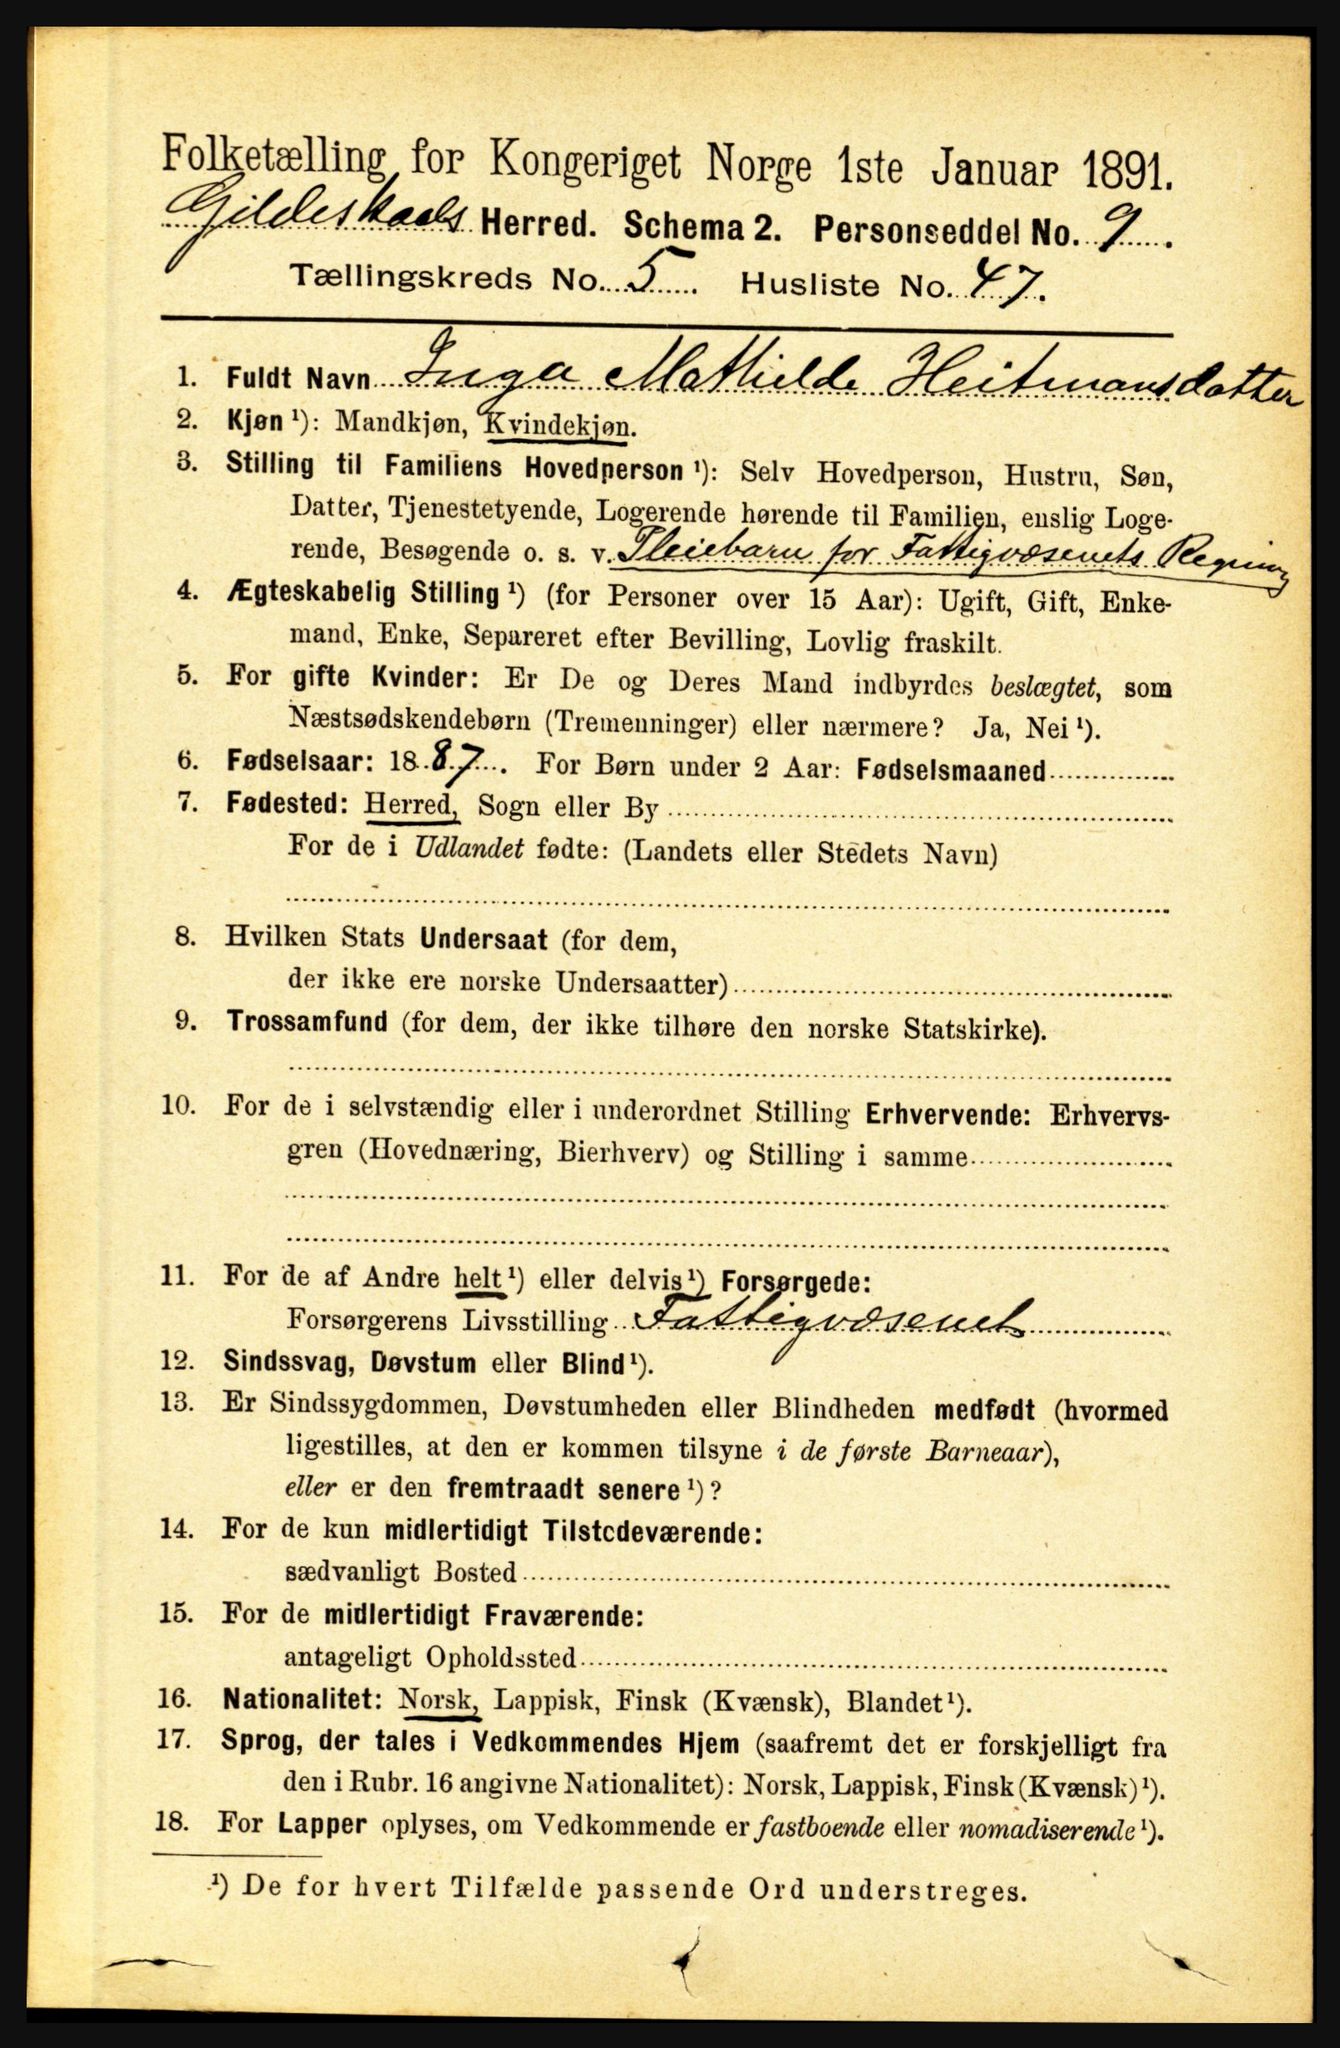 Folketælling for Kongeriget Norge 1ste Januar 1891.
Gildeskaals Herred. Schema 2. Personseddel No. 9.
Tællingskreds No. 5. Husliste No. 47.
1. Fuldt Navn Inga Mathilde Heitmansdatter
2. Kjøn ¹): Mandkjøn, Kvindekjøn.
3. Stilling til Familiens Hovedperson ¹): Selv Hovedperson, Hustru, Søn,
Datter, Tjenestetyende, Logerende hørende til Familien, enslig Loge-
rende, Besøgende o. s. v. Pleiebarn for Fattigvæsenets Regning
4. Ægteskabelig Stilling ¹) (for Personer over 15 Aar): Ugift, Gift, Enke-
mand, Enke, Separeret efter Bevilling, Lovlig fraskilt.
5. For gifte Kvinder: Er De og Deres Mand indbyrdes beslægtet, som
Næstsødskendebørn (Tremenninger) eller nærmere? Ja, Nei ¹).
6. Fødselsaar: 1887. For Børn under 2 Aar: Fødselsmaaned
7. Fødested: Herred, Sogn eller By
For de i Udlandet fødte: (Landets eller Stedets Navn)
8. Hvilken Stats Undersaat (for dem,
der ikke ere norske Undersaatter)
9. Trossamfund (for dem, der ikke tilhøre den norske Statskirke).
10. For de i selvstændig eller i underordnet Stilling Erhvervende: Erhvervs-
gren (Hovednæring, Bierhverv) og Stilling i samme
11. For de af Andre helt ¹) eller delvis ¹) Forsørgede:
Forsørgerens Livsstilling Fattigvæsenet
12. Sindssvag, Døvstum eller Blind ¹).
13. Er Sindssygdommen, Døvstumheden eller Blindheden medfødt (hvormed
ligestilles, at den er kommen tilsyne i de første Barneaar),
eller er den fremtraadt senere ¹)?
14. For de kun midlertidigt Tilstedeværende:
sædvanligt Bosted
15. For de midlertidigt Fraværende:
antageligt Opholdssted
16. Nationalitet: Norsk, Lappisk, Finsk (Kvænsk), Blandet ¹).
17. Sprog, der tales i Vedkommendes Hjem (saafremt det er forskjelligt fra
den i Rubr. 16 angivne Nationalitet): Norsk, Lappisk, Finsk (Kvænsk) ¹).
18. For Lapper oplyses, om Vedkommende er fastboende eller nomadiserende ¹).
¹) De for hvert Tilfælde passende Ord understreges.